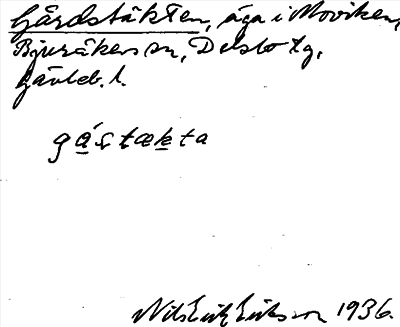 Gårdstäkten, äga i Moviken,
Bjuråkers sn, Delsbo tg,
Gävleb. l.
gástækta
Nils Erik Eriksson 1936.